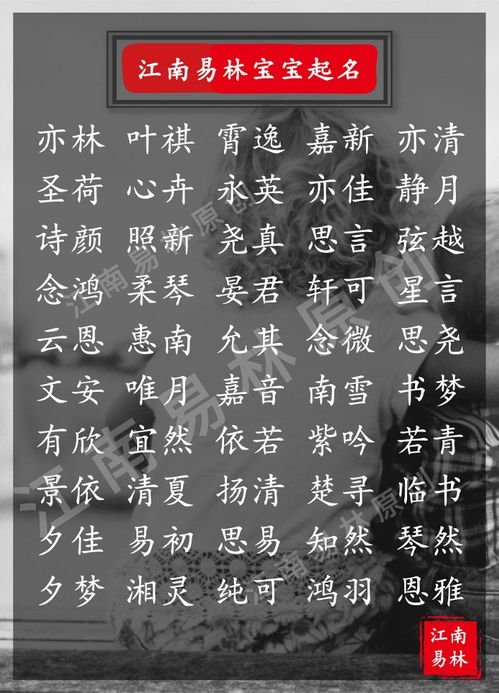 江南易林宝宝起名
亦林 叶祺 霄逸 嘉新 亦清
圣荷 心卉 永英 亦佳 静月
诗颜 照新 尧真 思言 弦越
念鸿 柔琴 晏君 轩可 星言
云恩 惠南 允其 念微 思尧
文安 唯月 嘉音 南雪 书梦
有欣 宜然 依若 紫吟 若青
景依 清夏 扬清 楚寻 临书
夕佳 易初 思易 知然 琴然
夕梦 湘灵 纯可 鸿羽 恩雅
江南
易林
江南易林原创
江南易林原创
江南易林原创